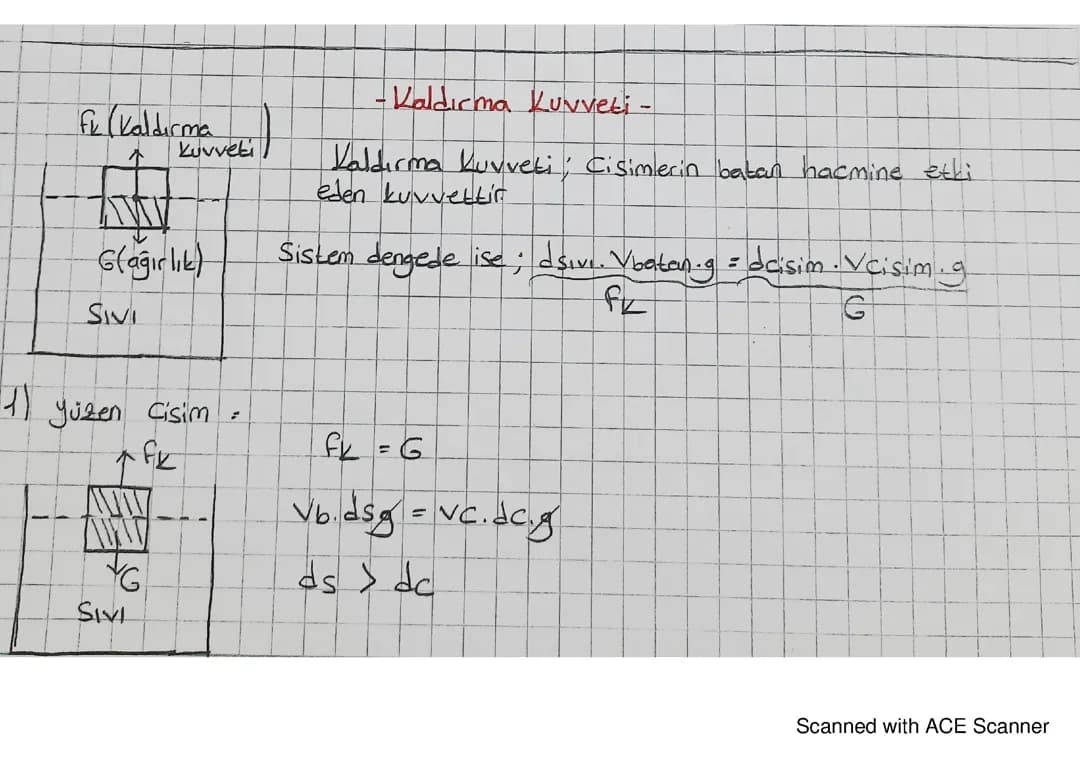 -Kaldırma Kuvveti-
fk (Kaldırma
Kuvveti)
Kaldırma Kuvveti; Cisimlerin batan hacmine etki
eden kuvvettir.
G(ağırlık)
Sıvı
Sistem dengede ise; dsıvı.Vbatan.g = dcisim.Vcisim.g
fk
G
1) yüzen Cisim =
fk
G
Sıvı
fk = G
Vb.dsg = vc.dc.g
ds > dc
Scanned with ACE Scanner